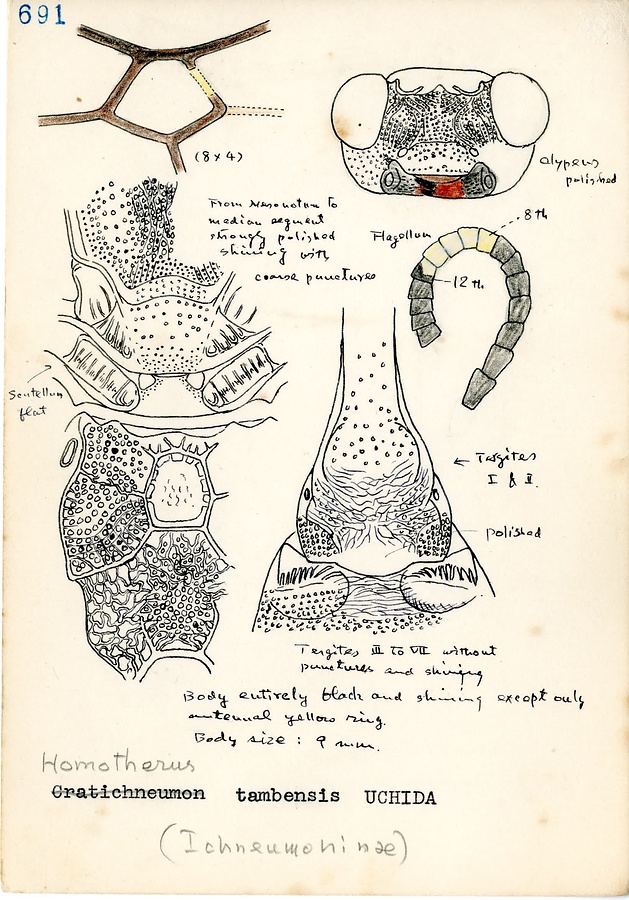 691
(8 x 4)
Clypeus
polished
From Mesonotum to
median segment
strongly polished
shining with
coarse punctures
Flagellum
8 th
12 th
Scutellum
flat
← Tergites
I & II.
polished
Tergites III to VII without
punctures and shining
Body entirely black and shining except only
antennal yellow ring.
Body size : 9 mm.
Homotherus
Cratichneumon tambensis UCHIDA
(Ichneumoninae)